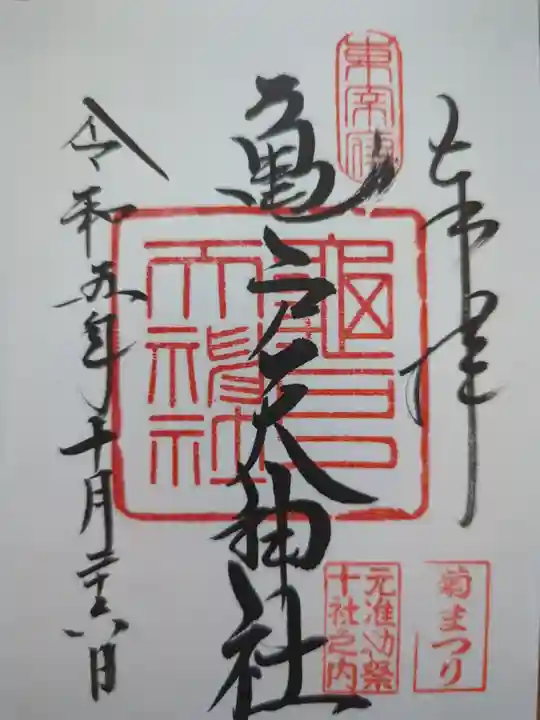 奉拝
東宰府
亀戸天神社
亀戸天神社
令和五年十月二十六日
元准勅祭十社之内
菊まつり